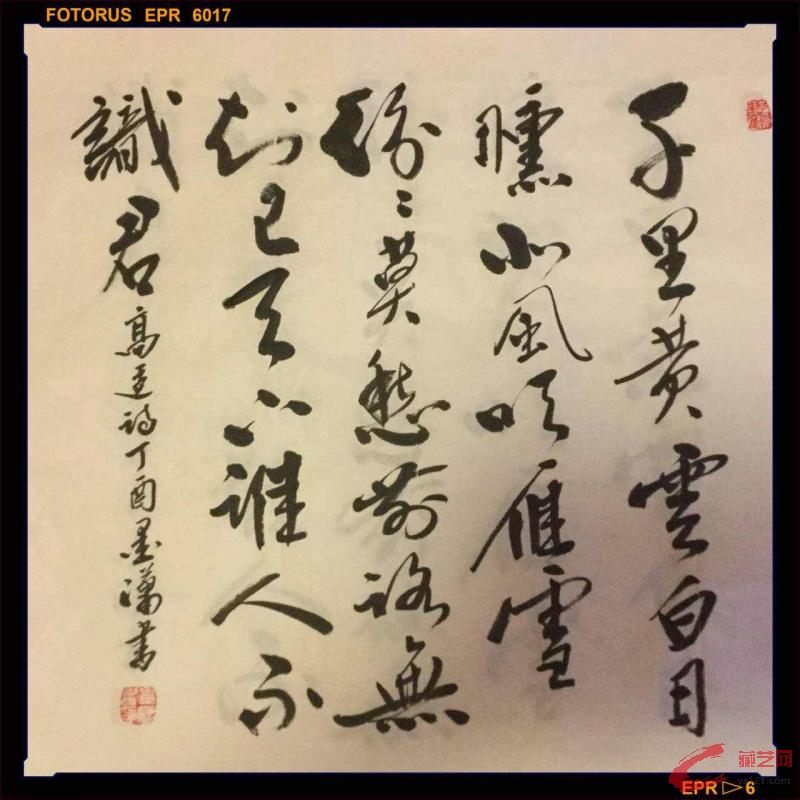 FOTORUS EPR 6017
千里黄雲白日
曛北風吹雁雪
紛〻莫愁前路無
知己天下誰人不
識君
高適詩丁酉墨瀟書
藏艺网
EPR ▷ 6